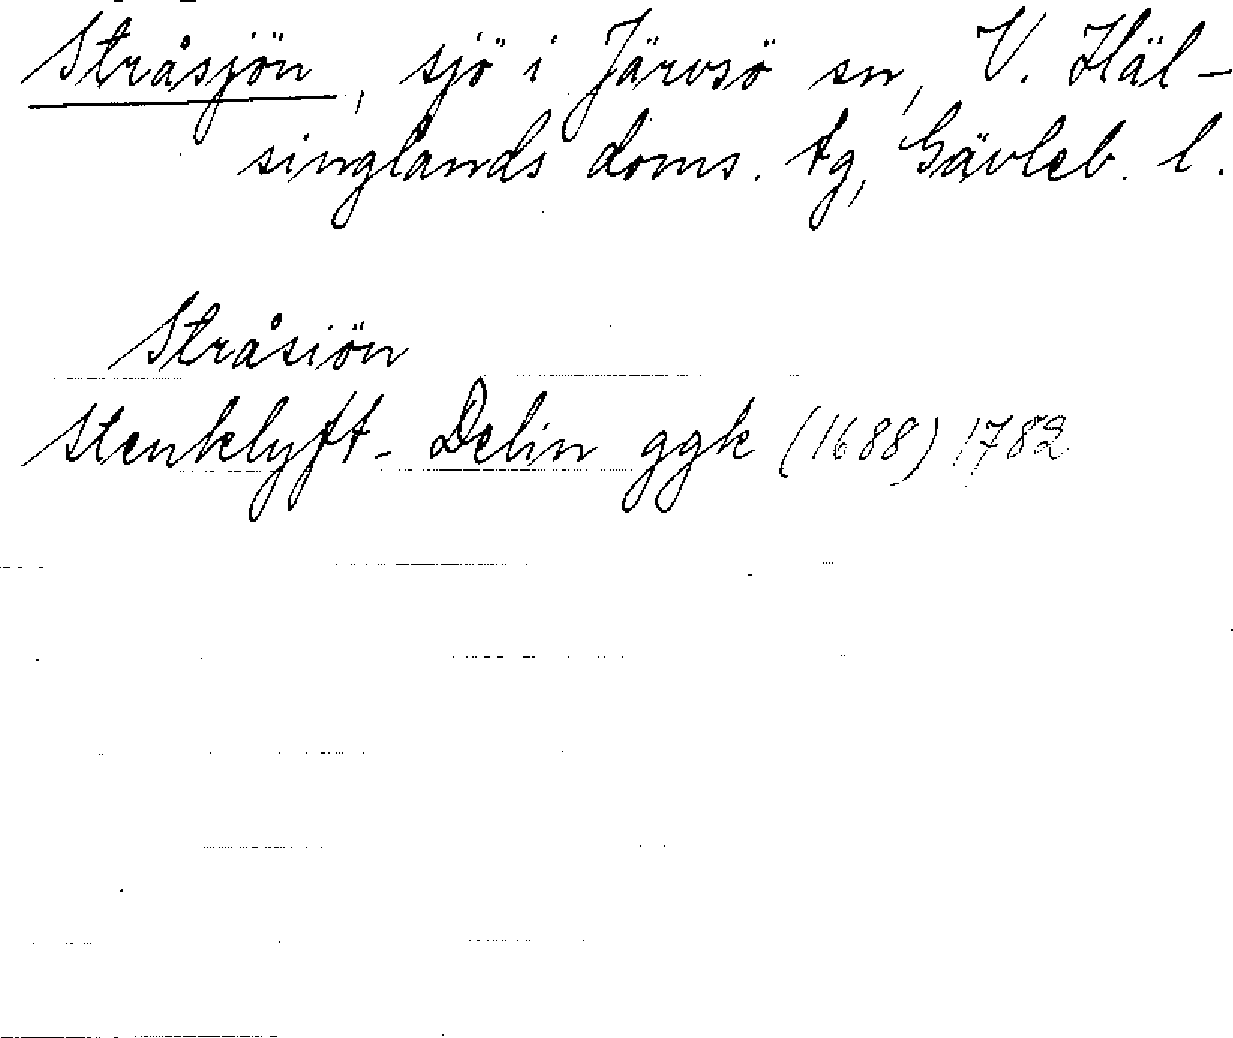 Stråsjön, sjö i Järvsö sn, V. Häl-
singlands doms. tg, Gävleb. l.
Stråsiön
Stenklyft - Delin ggk (1688) 1782